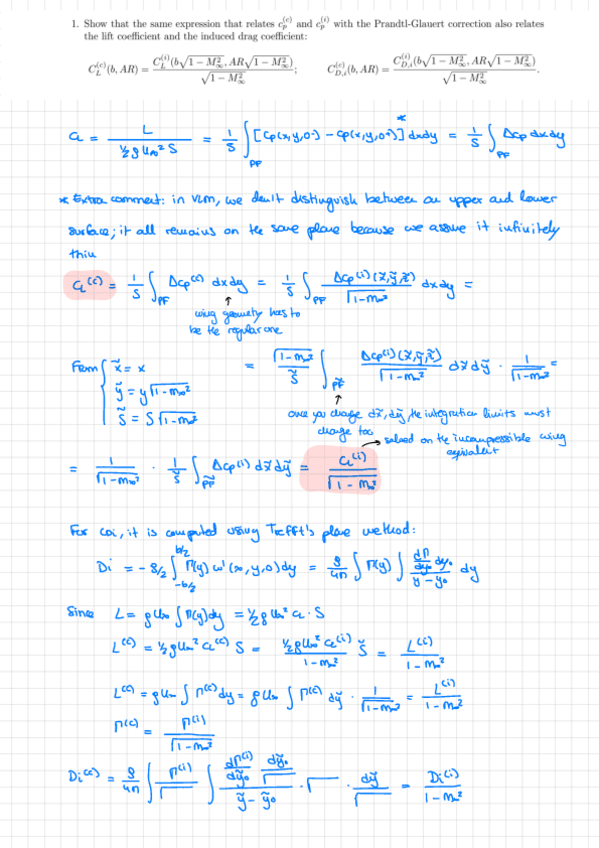 1. Show that the same expression that relates c_p^(c) and c_p^(i) with the Prandtl-Glauert correction also relates
the lift coefficient and the induced drag coefficient:
C_L^(c)(b, AR) = C_L^(i)(b√(1 − M∞²), AR√(1 − M∞²)) / √(1 − M∞²); C_D,i^(c)(b, AR) = C_D,i^(i)(b√(1 − M∞²), AR√(1 − M∞²)) / √(1 − M∞²).
CL = L / (½ρU∞²S) = 1/S ∫_PF [Cp(x,y,0-) − Cp(x,y,0+)]* dxdy = 1/S ∫_PF ΔCp dxdy
* Extra comment: in VLM, we don't distinguish between an upper and lower
surface; it all remains on the same plane because we assume it infinitely
thin
CL^(c) = 1/S ∫_PF ΔCp^(c) dxdy = 1/S ∫_PF ΔCp^(i)(x̃,ỹ,z̃) / √(1−M∞²) dxdy =
↑
wing geometry has to
be the regular one
From { x̃ = x
ỹ = y√(1−M∞²)
S̃ = S√(1−M∞²)
= √(1−M∞²)/S̃ ∫_P̃F̃ ΔCp^(i)(x̃,ỹ,z̃) / √(1−M∞²) dx̃dỹ · 1/√(1−M∞²) =
↑
once you change dx̃, dỹ, the integration limits must
change too
= 1/√(1−M∞²) · 1/S̃ ∫_P̃F̃ ΔCp^(i) dx̃dỹ = CL^(i) / √(1−M∞²)
→ solved on the incompressible wing
equivalent
For CDi, it is computed using Trefftz's plane method:
Di = −ρ/2 ∫_{-b/2}^{b/2} Γ(y) w'(∞,y,0)dy = ρ/4π ∫ Γ(y) ∫ (dΓ/dy₀ dy₀)/(y − y₀) dy
Since L = ρU∞ ∫Γ(y)dy = ½ρU∞²CL·S
L^(c) = ½ρU∞²CL^(c) S = ½ρU∞²CL^(i)/(1−M∞²) S̃ = L^(i)/(1−M∞²)
L^(c) = ρU∞ ∫Γ^(c)dy = ρU∞ ∫Γ^(c) dỹ · 1/√(1−M∞²) = L^(i)/(1−M∞²)
Γ^(c) = Γ^(i)/√(1−M∞²)
Di^(c) = ρ/4π ∫ Γ^(i)/√ ∫ (dΓ^(i)/dỹ₀ dỹ₀/√)/(ỹ − ỹ₀) · √ · dỹ/√ = Di^(i)/(1−M∞²)